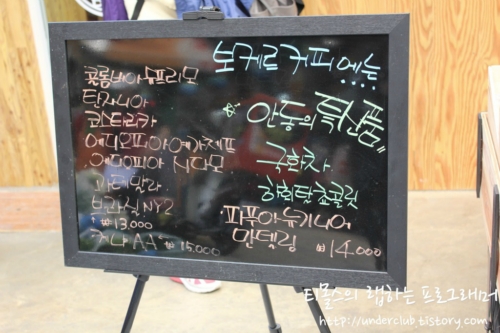 보케르 커피 메뉴
콜롬비아 슈프리모
탄자니아
코스타리카
에디오피아 예가체프
에디오피아 시다모
과테말라
브라질 NY2
₩13,000
케냐 AA ₩15,000
안동의 특산품
국화차
하회탈 초콜릿
파푸아뉴기니어
만델링 ₩14,000
티몰스의 랩하는 프로그래머
http://underclub.tistory.com